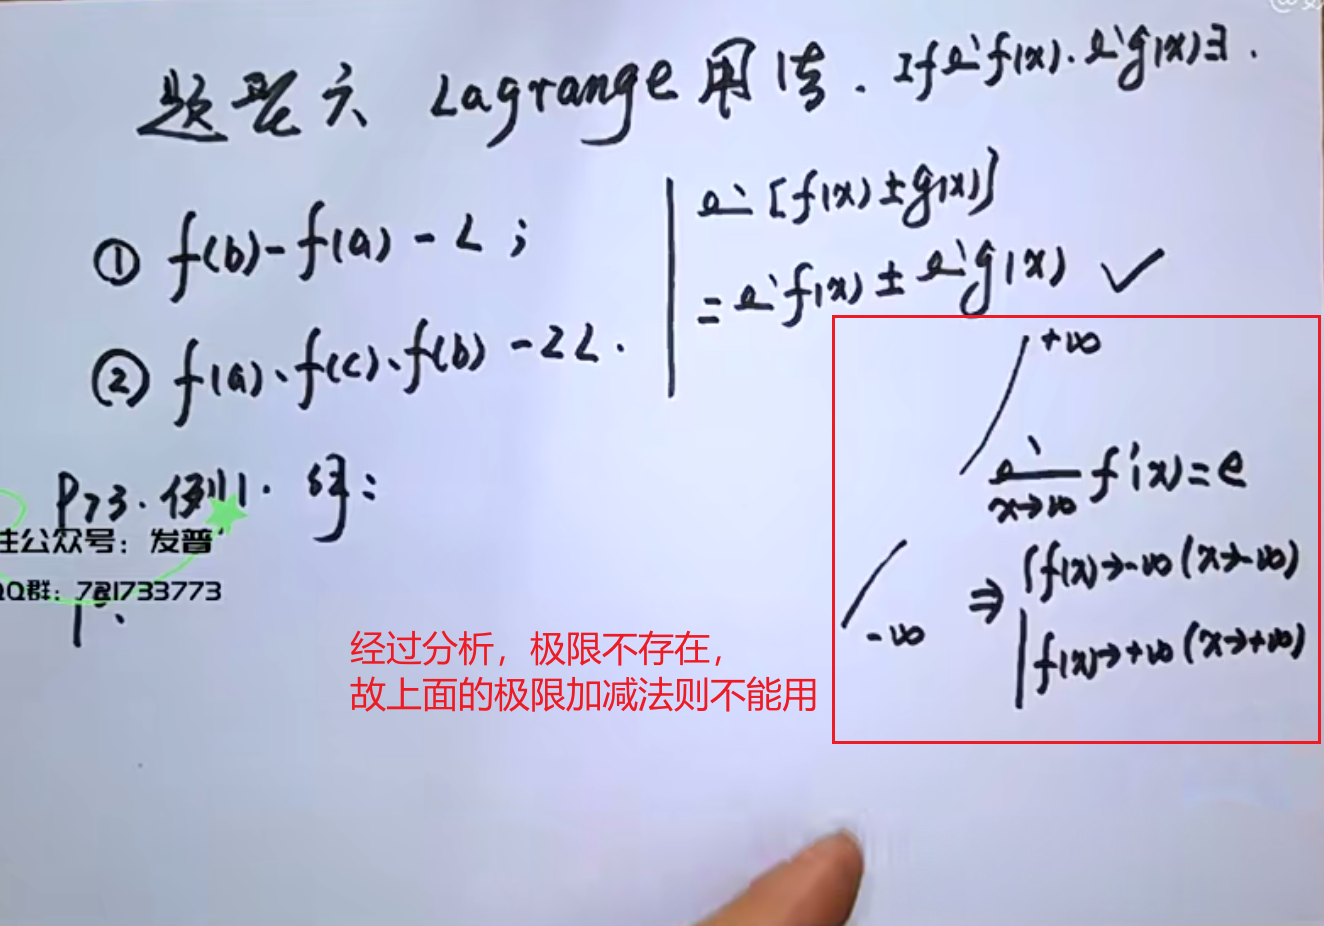 题型六 Lagrange用法. If lim f(x). lim g(x)∃.
① f(b)-f(a) - L;
② f(a)、f(c)、f(b) - 2L.
lim [f(x)±g(x)]
= lim f(x) ± lim g(x) ✓
P73. 例1. 解:
1°.
公众号：发普
QQ群：721733773
+∞
lim f'(x)=e
x→∞
-∞
⇒ f(x)→-∞ (x→-∞)
f(x)→+∞ (x→+∞)
经过分析，极限不存在，
故上面的极限加减法则不能用